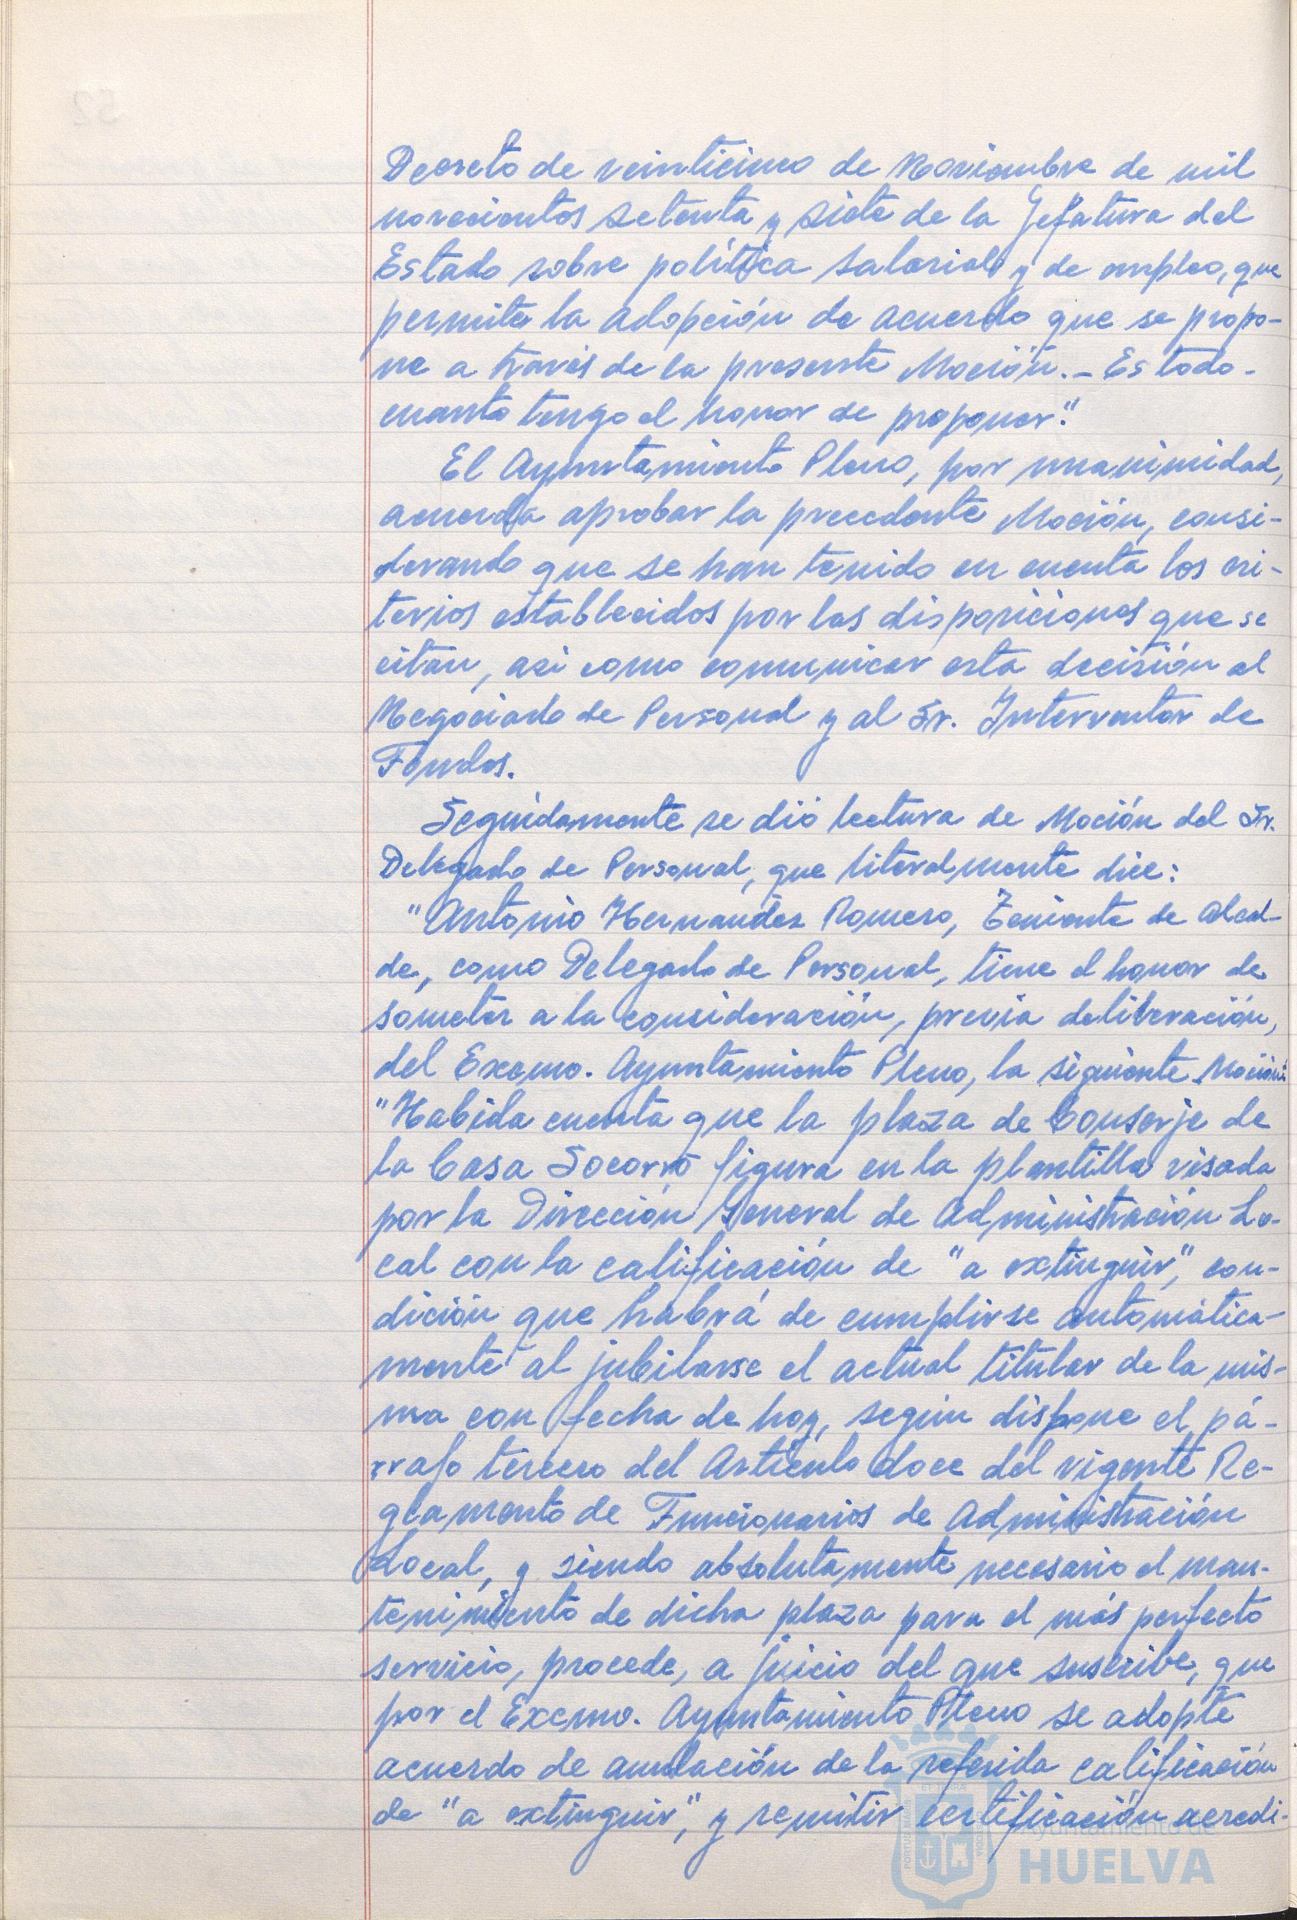 Decreto de veinticinco de Noviembre de mil
novecientos setenta y siete de la Jefatura del
Estado sobre política salarial y de empleo, que
permite la adopción de acuerdo que se propo-
ne a través de la presente Moción.- Es todo-
cuanto tengo el honor de proponer."
El Ayuntamiento Pleno, por unanimidad,
acuerda aprobar la precedente Moción, consi-
derando que se han tenido en cuenta los cri-
terios establecidos por las disposiciones que se
citan, asi como comunicar esta decisión al
Negociado de Personal y al Sr. Interventor de
Fondos.
Seguidamente se dió lectura de Moción del Sr.
Delegado de Personal, que literalmente dice:
"Antonio Hernandez Romero, Teniente de Alcal-
de, como Delegado de Personal, tiene el honor de
someter a la consideración, previa deliberación,
del Excmo. Ayuntamiento Pleno, la siguiente Moción:
"Habida cuenta que la plaza de Conserje de
la Casa Socorro figura en la plantilla visada
por la Dirección General de Administración Lo-
cal con la calificación de "a extinguir", con-
dición que habrá de cumplirse automática-
mente al jubilarse el actual titular de la mis-
ma con fecha de hoy, según dispone el pá-
rrafo tercero del Artículo doce del vigente Re-
glamento de Funcionarios de Administración
Local, y siendo absolutamente necesario el man-
tenimiento de dicha plaza para el más perfecto
servicio, procede, a juicio del que suscribe, que
por el Excmo. Ayuntamiento Pleno se adopte
acuerdo de anulación de la referida calificación
de "a extinguir", y remitir certificación acredi-
Ayuntamiento de
HUELVA